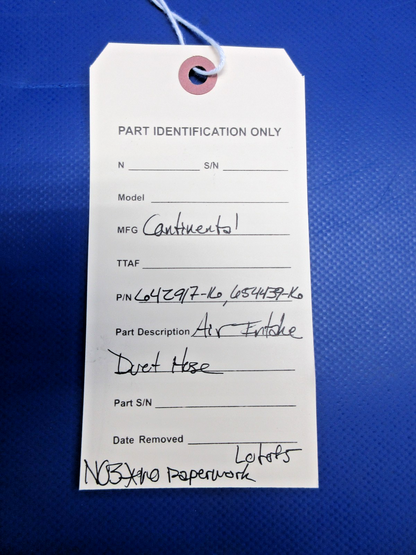 PART IDENTIFICATION ONLY
N S/N
Model
MFG Continental
TTAF
P/N 642917-16, 654439-16
Part Description Air Intake
Duct Hose
Part S/N
Date Removed
Lot of 5
NOS no paperwork